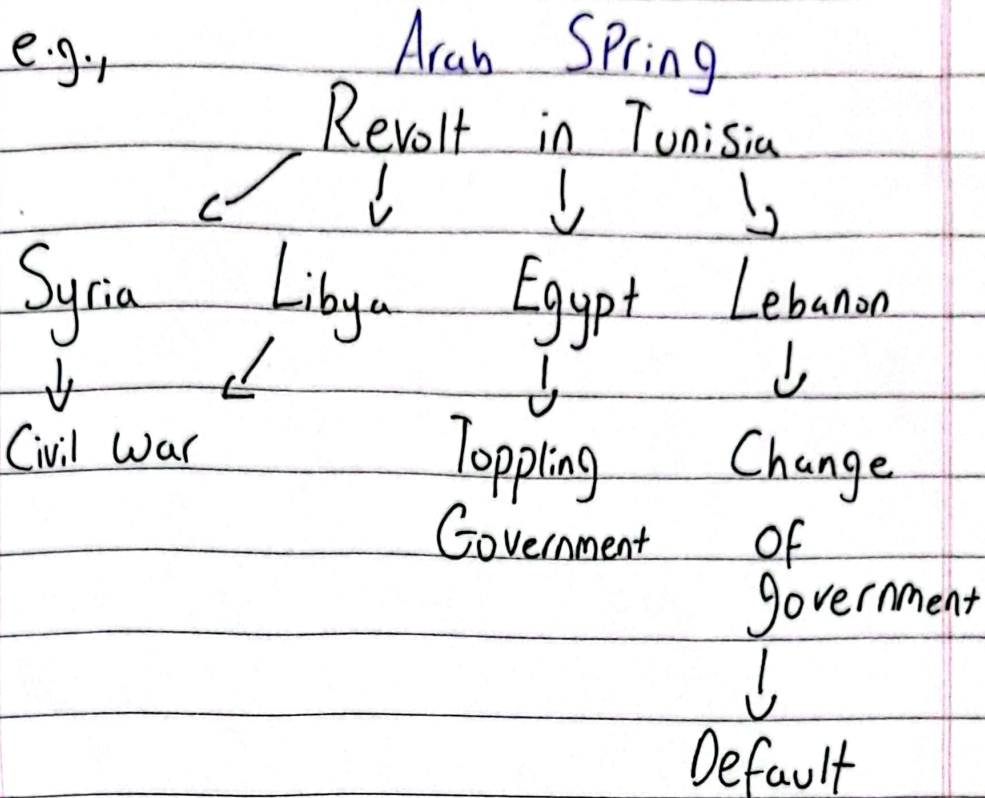 e.g., Arab Spring
Revolt in Tunisia
Syria Libya Egypt Lebanon
Civil War Toppling Change
Government of
government
Default